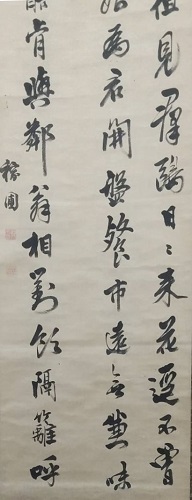 但見羣鷗日〻來花逕不曾
始為君開盤餐市遠无兼味
醅肯與鄰翁相對飲隔籬呼